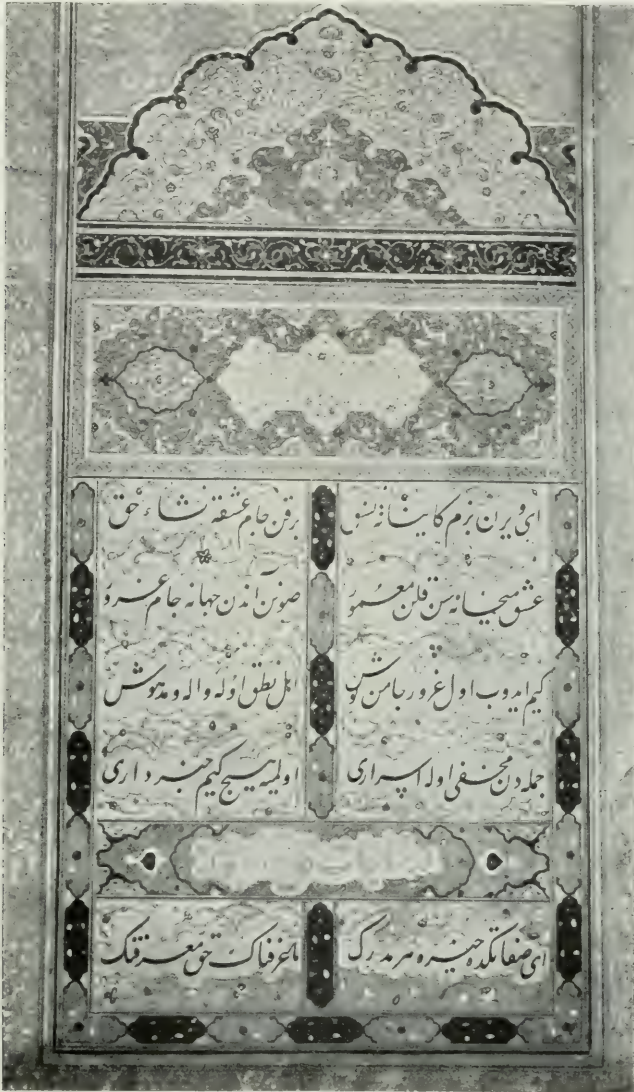 ای ویرن بزم کایناته نسق برقن جام عشقه نشاء حق
عشق میخانه سن قلن معمور صونن اندن جهانه جام غرور
کیم ایدوب اول غرور جامن نوش اهل نطق اوله واله و مدهوش
جمله دن مخفی اوله اسراری اولمیه هیچ کیم خبرداری
ای صفاتکده خیره هر مدرک ما عرفناک حق معرفتک